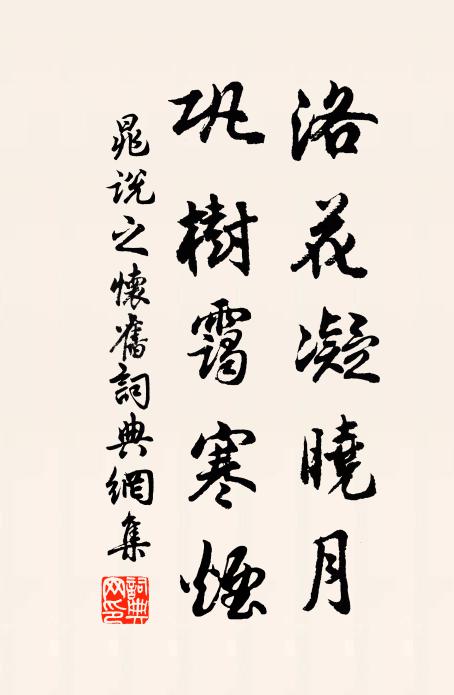 洛花凝曉月
巩樹靄寒煙
晁說之懷舊詞典網集
詞典网印